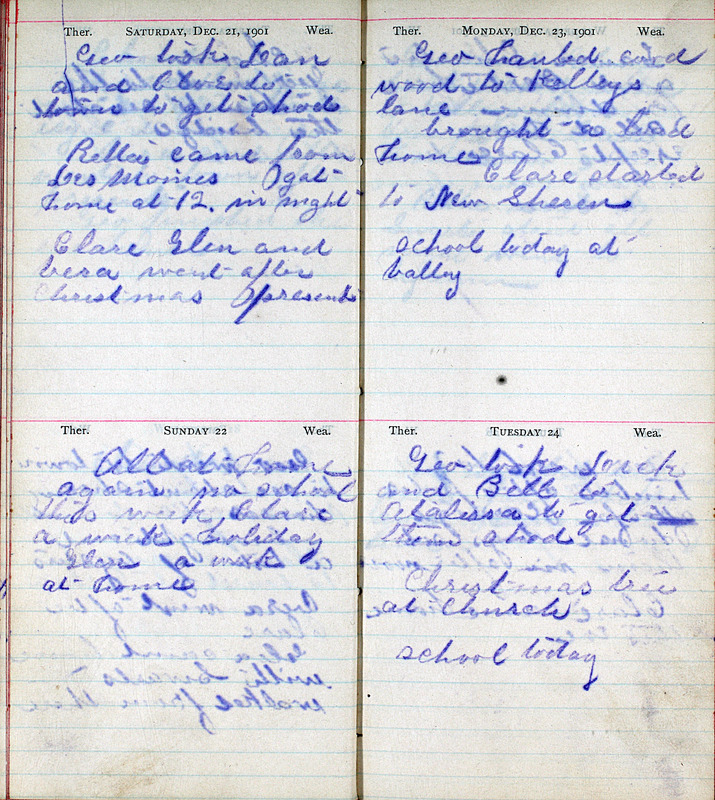 Ther. SATURDAY, DEC. 21, 1901 Wea.
Geo took Dan
and to
town to get shod
Relleis came from
Des Moines I got
home at 12. in night
Clare Glen and
vera went after
Christmas presents
Ther. SUNDAY 22 Wea.
All at Home
again no school
this week Clare
a week holiday
Glen a week
at home
Ther. MONDAY, DEC. 23, 1901 Wea.
Geo hauled cord
wood to Kelleys
lane
brought a load
home
Clare started
to New Sharen
school today at
valley
Ther. TUESDAY 24 Wea.
Geo took
and Bell to
Atalissa to get
them shod
Christmas tree
at Church
school today